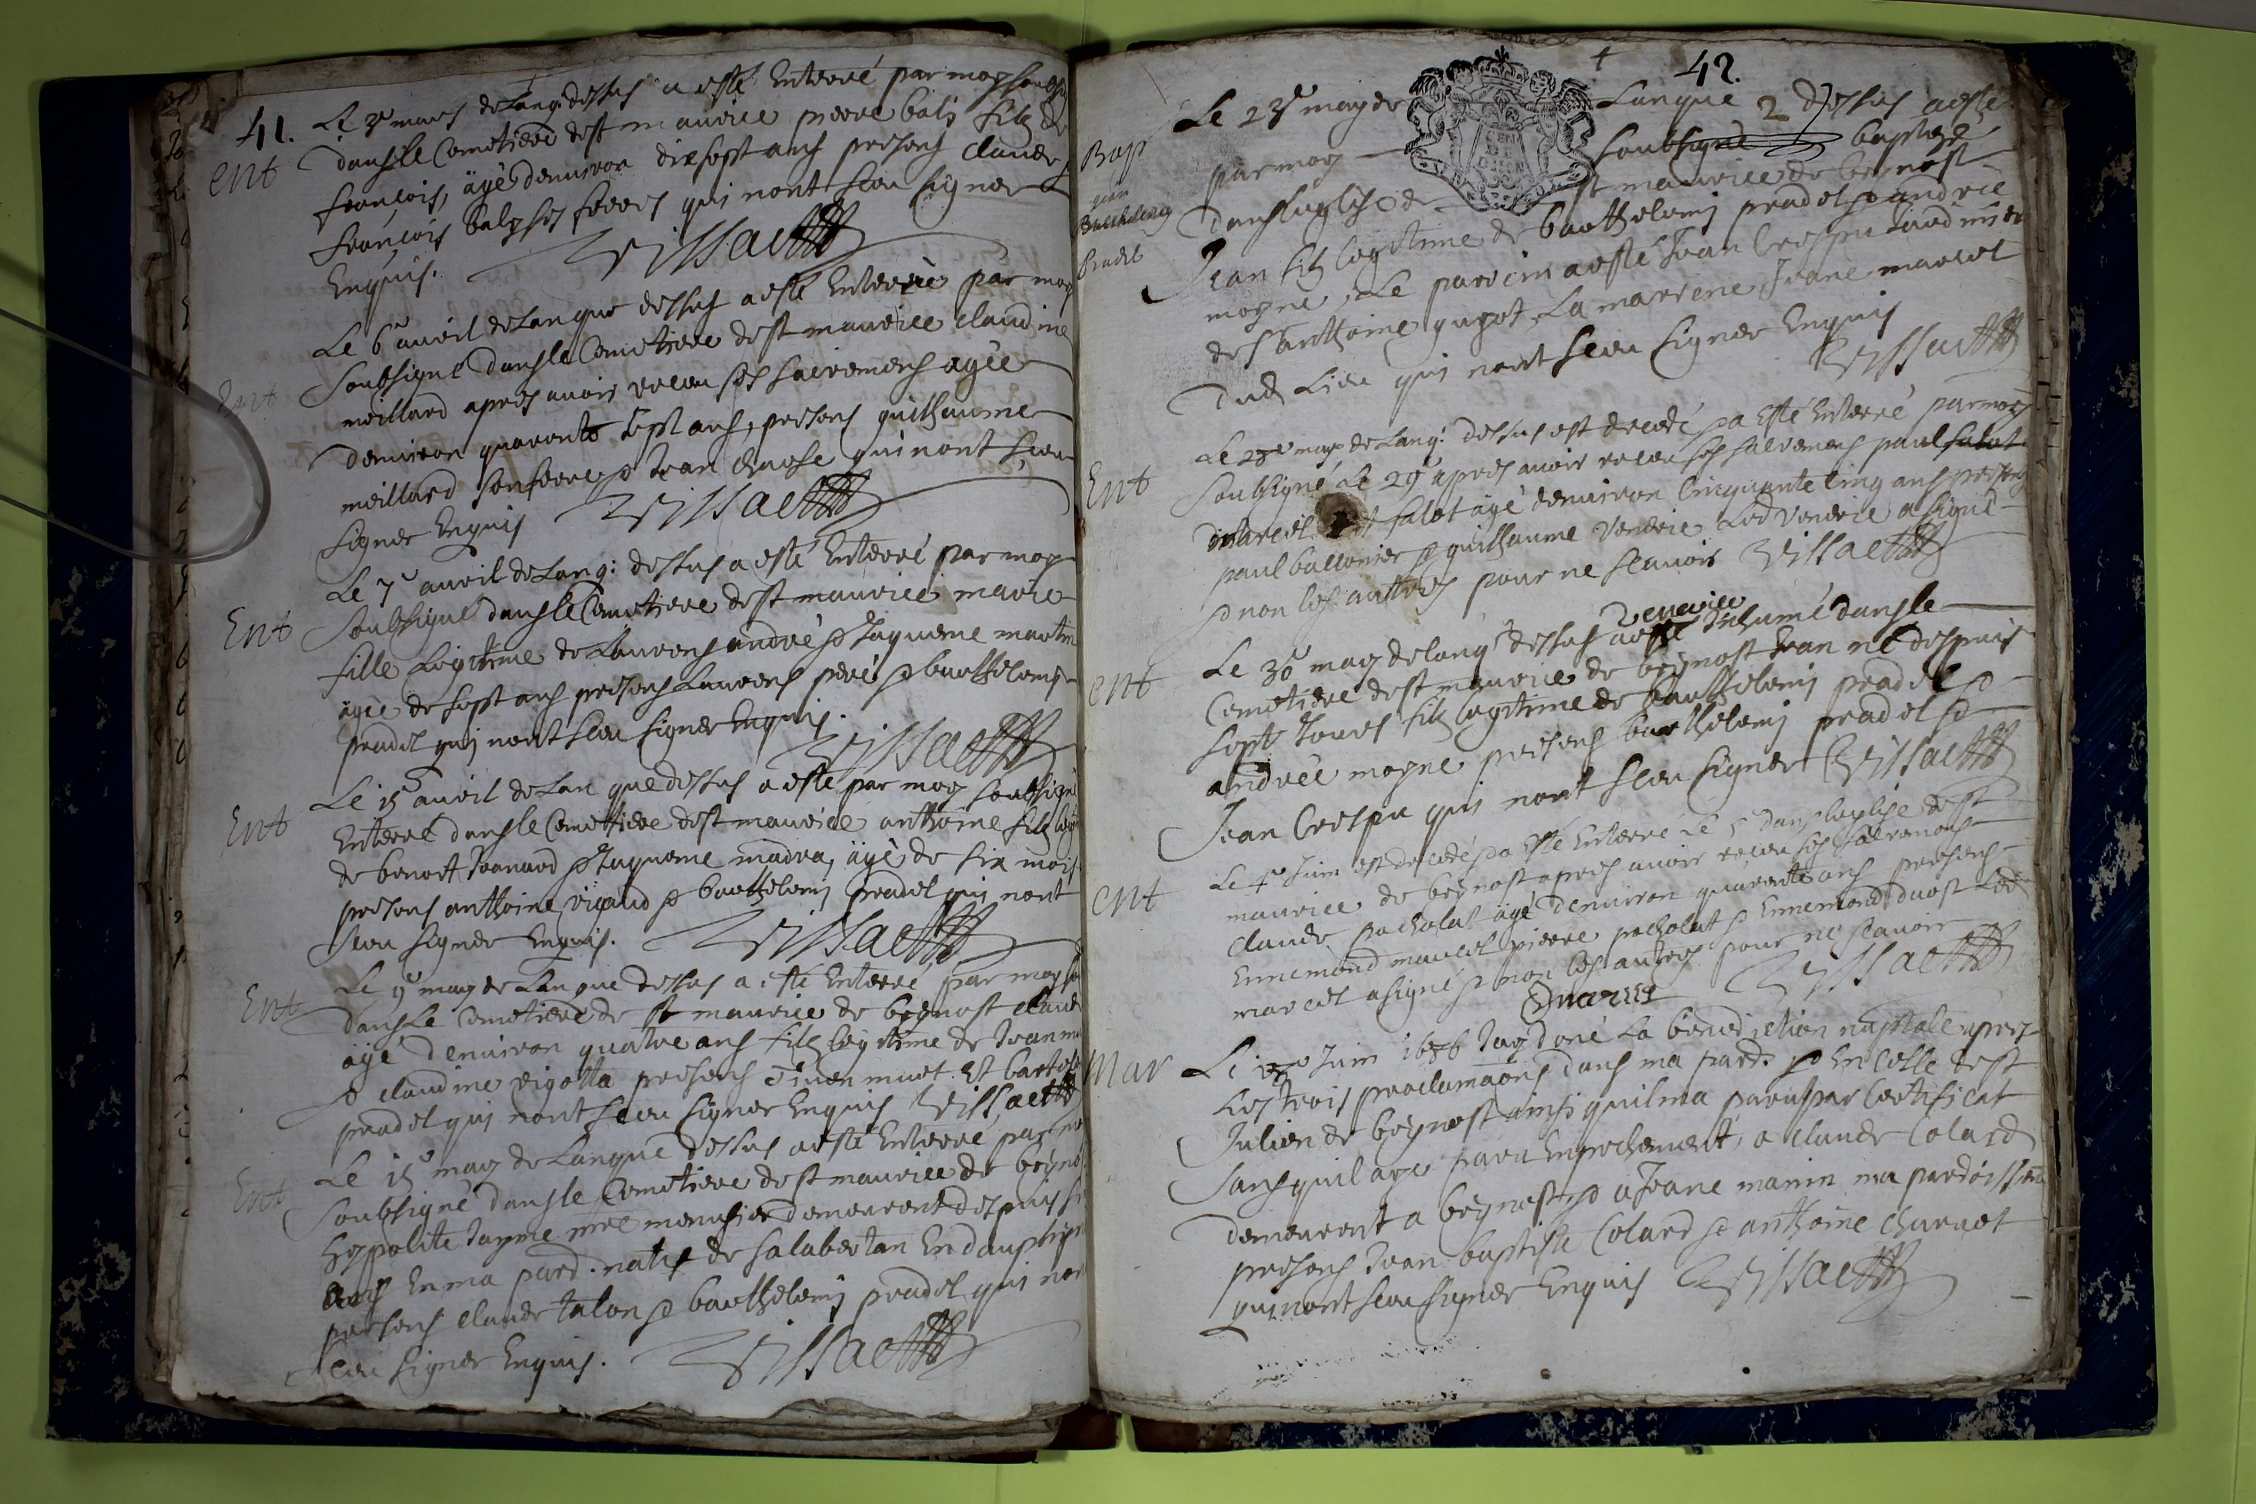 41.
ent
Le 3e mars de lanq. dessus a esté Enterré par moy soubs
dansle Cemetiere de st maurice pierre baly fils de
francois, agé denuiron dix sept ans presens claude
francois baly ses freres qui nont sceu signer
Enquis. Vissaett
Ent
Le 6e auril de lanque dessus a esté Enterrée par moy
Soubsigné dansle Cemetiere de st maurice claudine
meillard apres auoir receu ses sacremens agée
denuiron quarante sept ans, presens guilhaume
meillard son frere & Jean chose qui nont sceu
signer Enquis Vissaett
Ent
Le 7e auril de lanq: dessus a esté Enterré par moy
Soubsigné dansle Cemetiere de st maurice marie
fille Legitime de Laurens andré & Jaqueme martin
agée de sept ans presens Laurens pere & barthelemy
pradel qui nont sceu signer Enquis. Vissaett
Ent
Le 15e auril de Lan que dessus a esté par moy soubsigné
Enterré dansle Cemettiere de st maurice anthoine fils legi
de benoit Joanard & Jaqueme madra, agé de six mois
presens anthoine rigaud & barthelemi pradel qui nont
sceu signer Enquis. Vissaett
Ent
Le 9e may de Lanque dessus a esté Enterré par moy so
dansle Cemetiere de st maurice de beynost claude
agé denuiron quatre ans fils legitime de Jean
& claudine rigotta presens muet Et bartele
pradel qui nont sceu signer Enquis Vissaett
Ent
Le 15e may de Lanque dessus a esté Enterré par mo
soubsigné dansle Cemetiere de st maurice de beyno
hypolite Jayme mre menusier demeurent despuis si
ans En ma parr. natif de salabertan En dauphiné
presens claude talon & barthelemi pradel qui nont
sceu signer Enquis. Vissaett
42.
Bap
jean
Barthelemy
Pradel
Le 23e may de Lanque 2 dessus a esté
par moy soubsigné baptizé
dans leglise de st maurice de beynost
Jean fils legitime de barthelemi pradel & andrée
moyne, Le parrein a esté Jean Crespu
de st anthoine guyot, La marrene Jeane marcel
dud Lieu qui nont sceu signer Enquis
Vissaett
Ent
Le 28e may de Lanq. dessus est decedé & a Esté Enterré par moy
Soubsigné Le 29e apres auoir receu ses sacremens paul salot
salot agé denuiron cinquante cinq ans presens
paul ballonier & guilhaume Venerie Led Venerie a signé
& non les autres pour ne scauoir Vissaett
Venerie
ent
Le 30 may de lanq dessus a esté Inhumé dansle
Cemetiere de st maurice de beynost Jean né despuis
sept Jours fils legitime de barthelemi pradel &
andrée moyne presens barthelemi pradel &
Jean Crespu qui nont sceu signer Vissaett
ent
Le 4e Juin est decedé & a Esté Enterré Le 5e dans leglise de st
maurice de beynost apres auoir receu ses sacremens
claude pacholat agé denuiron quarante ans presens
Ennemond marcel pierre pacholat & Ennemond duost Led
marcel a signé & non les autres pour ne scauoir
Vissaett
Emarcel
Mar
Le Juin 1686 Jay doné La benediction nuptiale apres
Les trois proclamaons dans ma parr. & En celle de st
Julien de beynost ainsi quil ma paru par certificat
sans quil aye paru Enpechement, a claude Colard
demeurent a beynost & a Jeane manin ma parroissiene
presens Jean baptiste Colard & anthoine charuet
qui nont sceu signer Enquis Vissaett